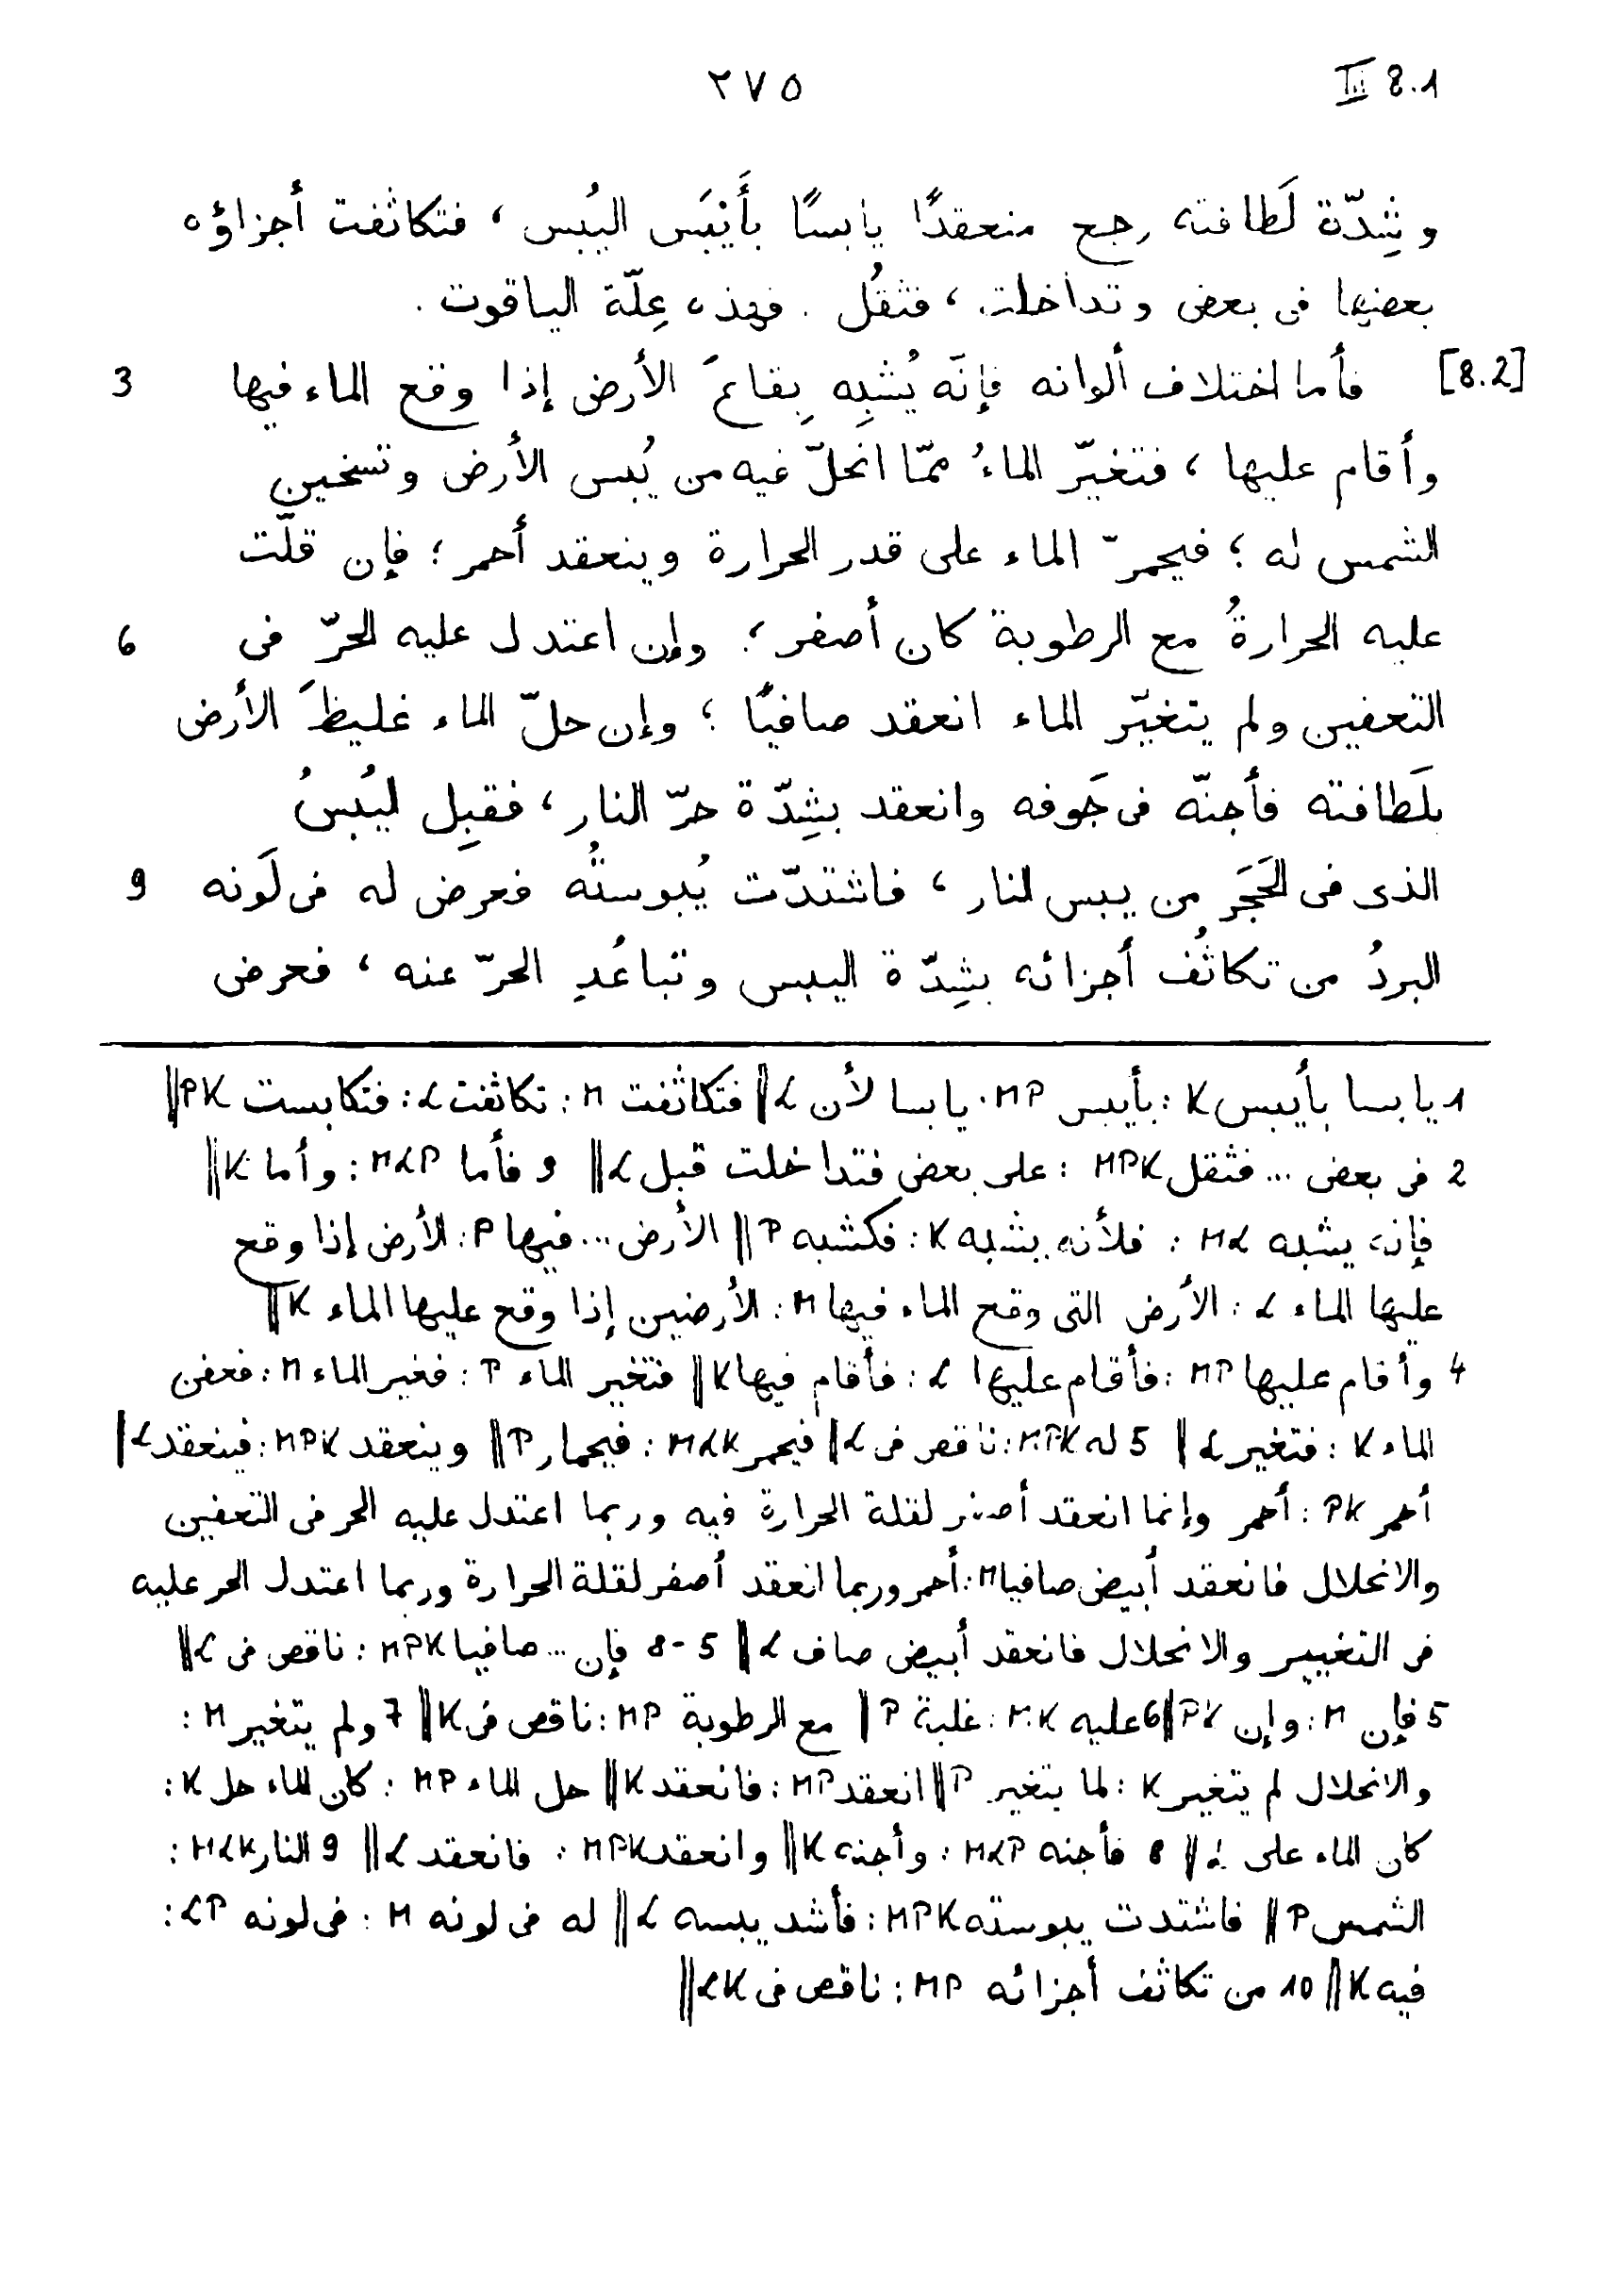 ٢٧٥ III 8.1
وشِدّة لَطافته رجع منعقدًا يابسًا بأَيْبَس اليُبس ، فتكاثفت أجزاؤه
بعضها فى بعض وتداخلت ، فثقُل . فهذه عِلّة الياقوت .
[8.2] فأما اختلاف ألوانه فإنّه يُشبِه بِقاعَ الأرض إذا وقع الماء فيها 3
وأقام عليها ، فتغيّر الماءُ ممّا انحلّ فيه من يُبس الأرض وتسخين
الشمس له ؛ فيحمرّ الماء على قدر الحرارة وينعقد أحمر ؛ فإن قلّت
عليه الحرارةُ مع الرطوبة كان أصفر ؛ وإن اعتدل عليه الحرّ فى 6
التعفين ولم يتغيّر الماء انعقد صافيًا ؛ وإن حلّ الماء غليظَ الأرض
بلَطافته فأجنّه فى جَوفه وانعقد بشِدّة حرّ النار ، فقبِل ليُبسُ
الذى فى الحَجَر من يبس النار ، فاشتدّت يُبوستُه فعرض له فى لَونه 9
البردُ من تكاثُف أجزائه بشِدّة اليبس وتباعُدِ الحرّ عنه ، فعرض
1 يابسا بأيبس K : بأيبس MP . يابسا لأن L || فتكاثفت M : تكاثفت L : فتكابست PK ||
2 فى بعض ... فثقل MPK : على بعض فتداخلت قبل L || و فأما MLP : وأما K ||
فإنه يشبه ML : فلأنه يشبه K : فكشبه P || الأرض ... فيها P : الأرض إذا وقع
عليها الماء L : الأرض التى وقع الماء فيها M : الأرضين إذا وقع عليها الماء K ||
4 وأقام عليها MP : فأقام عليها L : فأقام فيها K || فتغير الماء P : فغير الماء M : فعفن
الماء K : فتغير L || 5 له MPK : ناقص فى L || فيحمر MLK : فيحمار P || وينعقد MPK : فينعقد L ||
أحمر PK : أحمر وإنما انعقد أصفر لقلة الحرارة فيه وربما اعتدل عليه الحر فى التعفين
والانحلال فانعقد أبيض صافيا M : أحمر وربما انعقد أصفر لقلة الحرارة وربما اعتدل الحر عليه
فى التغيير والانحلال فانعقد أبيض صاف L || 5 - 8 فإن ... صافيا MPK : ناقص فى L ||
5 فإن M : وإن PK || 6 عليه MK : غلبة P || مع الرطوبة MP : ناقص فى K || 7 ولم يتغير M :
والانحلال لم يتغير K : لما يتغير P || انعقد MP : فانعقد K || حل الماء MP : كان الماء حل K :
كان الماء على L || 8 فأجنه MLP : وأجنه K || وانعقد MPK : فانعقد L || 9 النار MLK :
الشمس P || فاشتدت يبوسته MPK : فأشد يبسه L || له فى لونه M : فى لونه LP :
فيه K || 10 من تكاثف أجزائه MP : ناقص فى LK ||